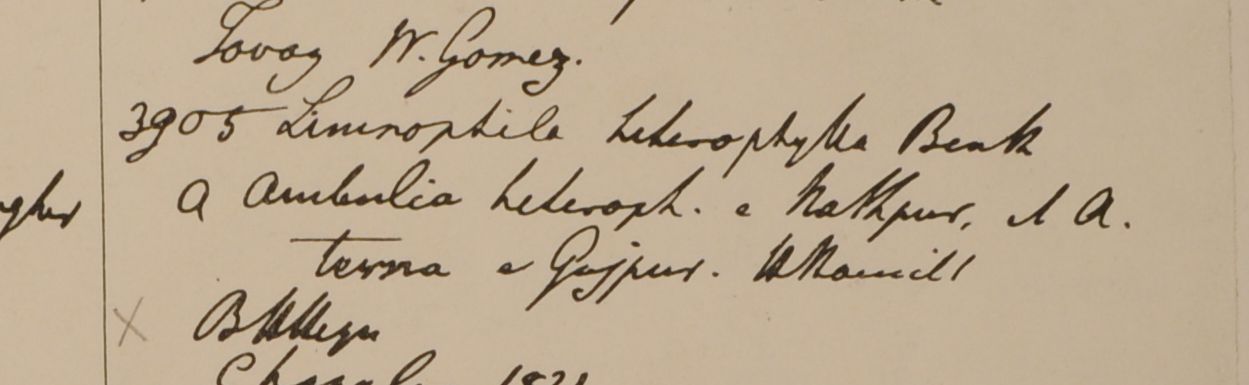 Tavoy W. Gomez.
3905 Limnophila heterophylla Benth
a Ambulia heteroph. e Nathpur, et A.
terna e Gujpur. HHamilt
B
1821